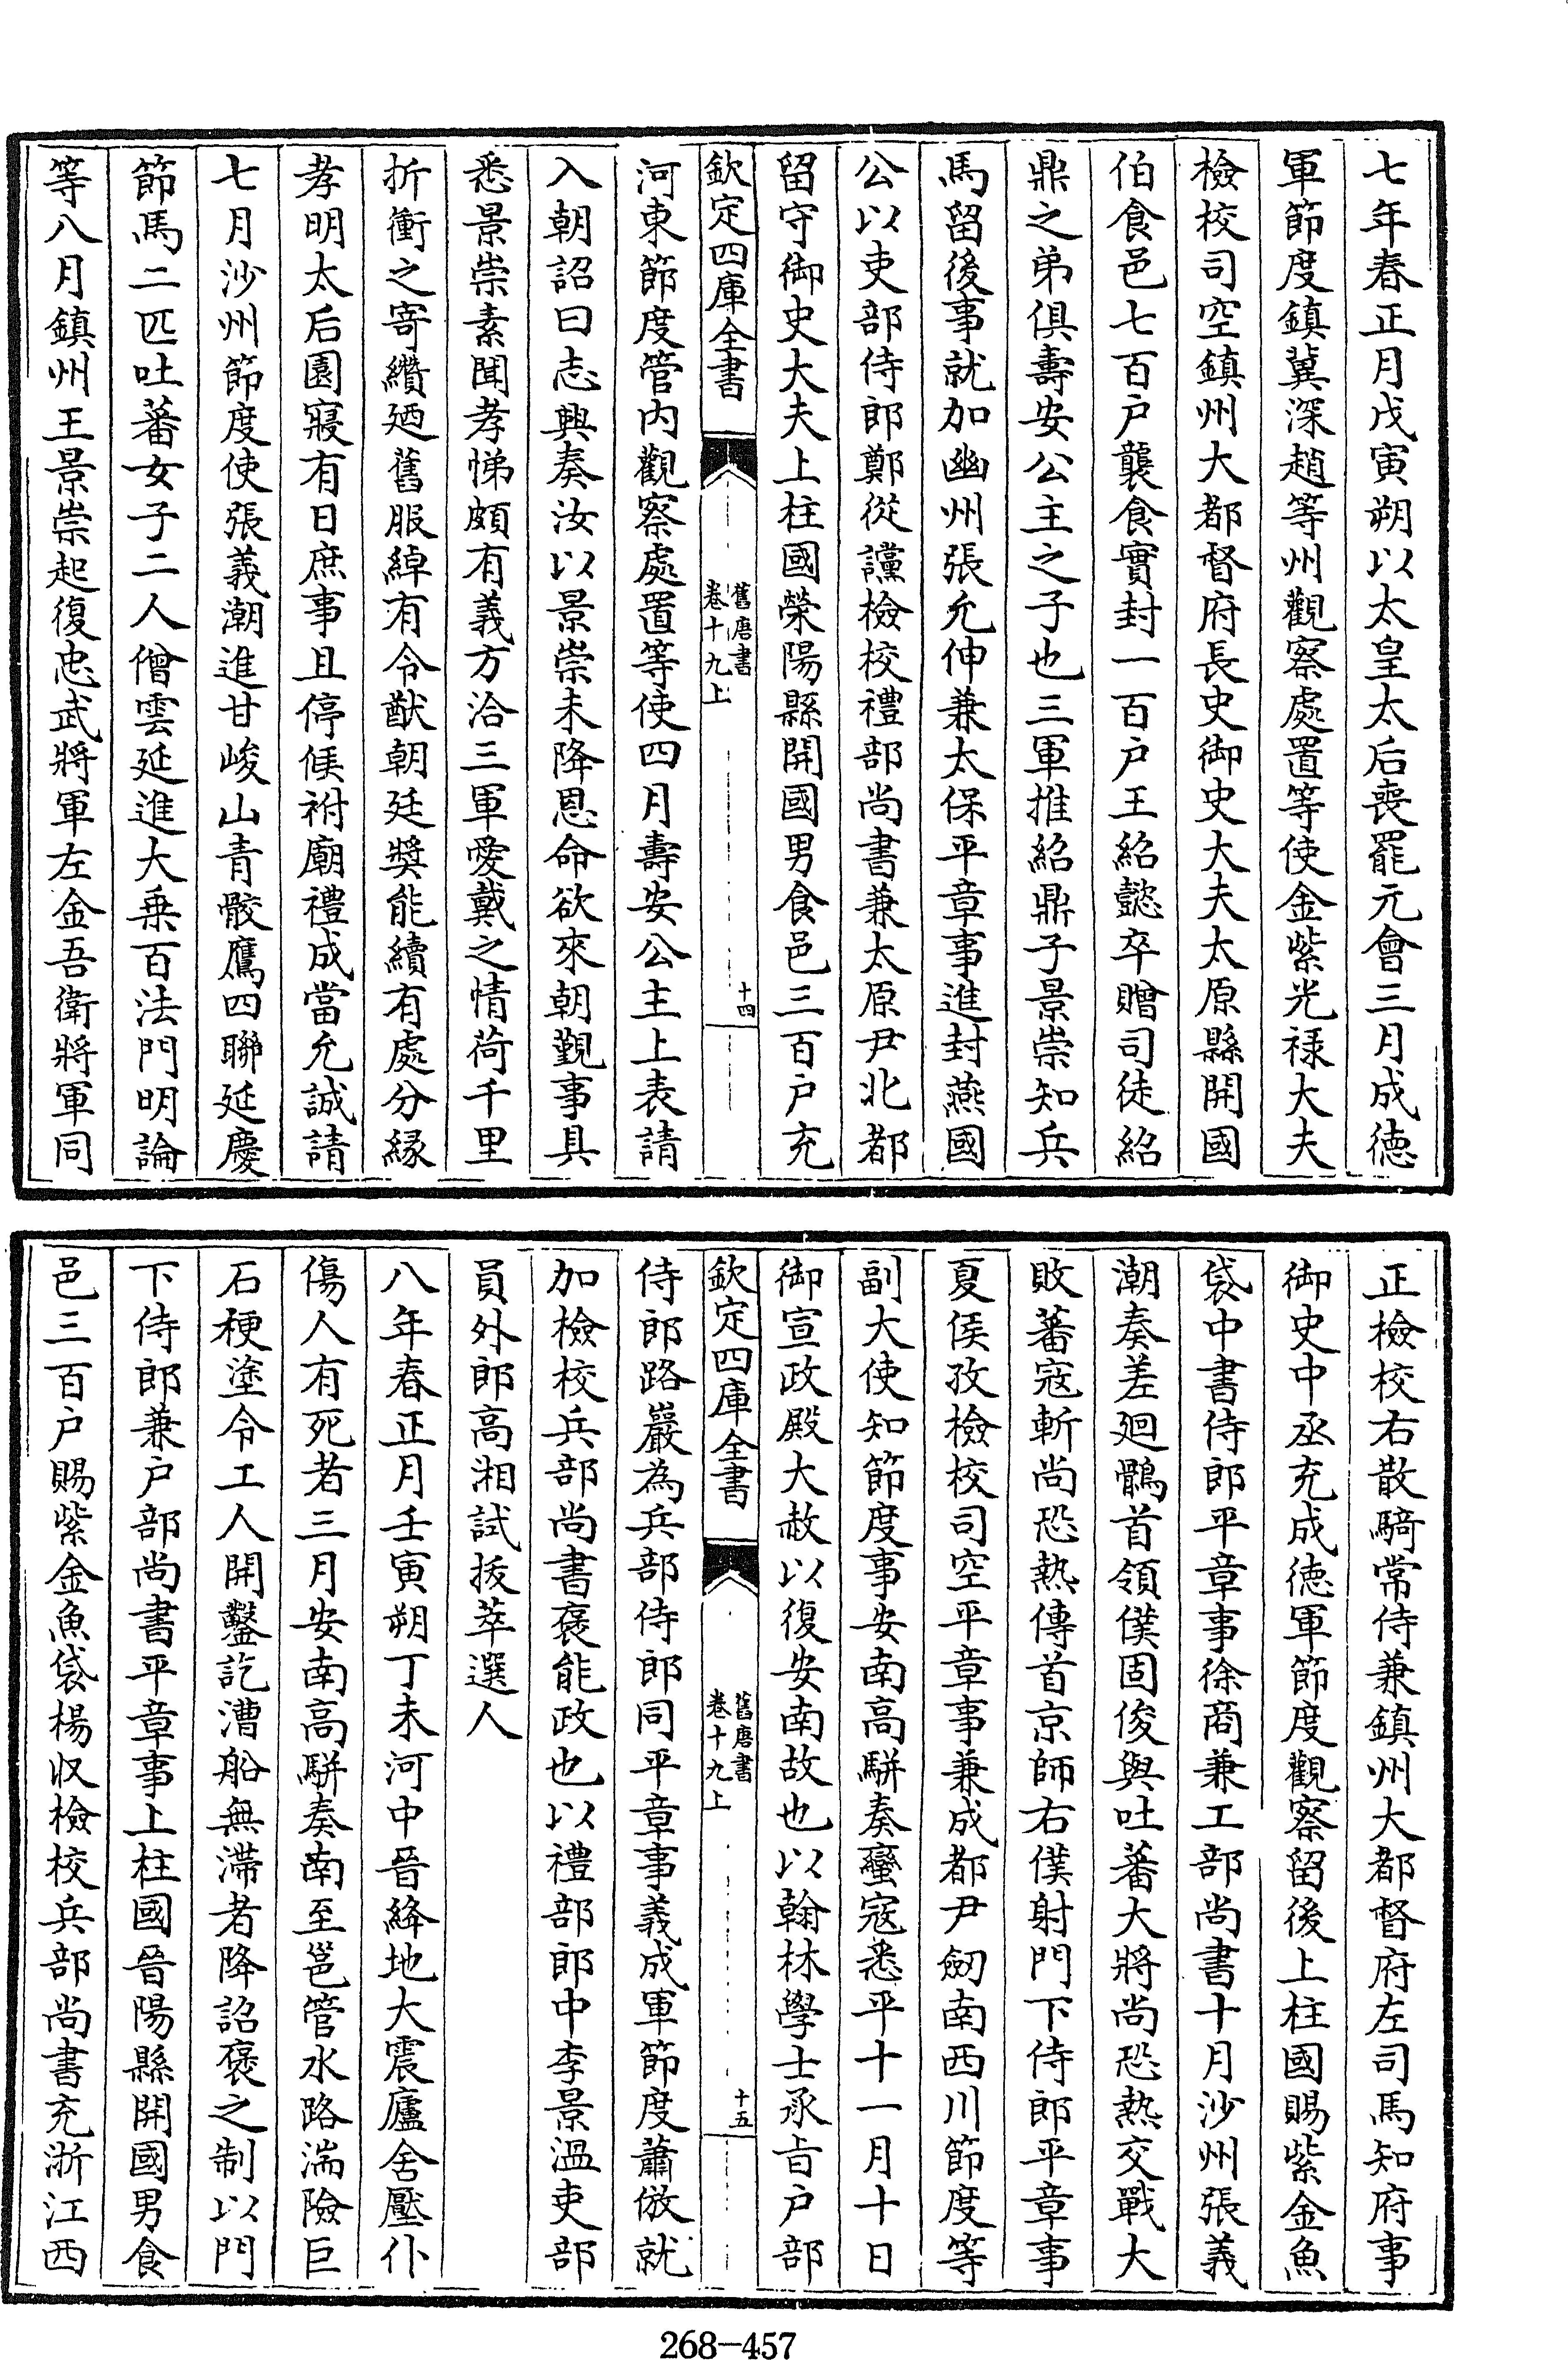 七年春正月戊寅朔以太皇太后喪罷元會三月成徳
軍節度鎮冀深趙等州觀察處置等使金紫光禄大夫
檢校司空鎮州大都督府長史御史大夫太原縣開國
伯食邑七百户襲食實封一百户王紹懿卒贈司徒紹
鼎之弟俱壽安公主之子也三軍推紹鼎子景崇知兵
馬留後事就加幽州張允伸兼太保平章事進封燕國
公以吏部侍郎鄭從讜檢校禮部尚書兼太原尹北都
留守御史大夫上柱國榮陽縣開國男食邑三百户充
欽定四庫全書
舊唐書
卷十九上
十四
河東節度管内觀察處置等使四月壽安公主上表請
入朝詔曰志興奏汝以景崇未降恩命欲來朝覲事具
悉景崇素聞孝悌頗有義方洽三軍愛戴之情荷千里
折衝之寄纘廼舊服綽有令猷朝廷奬能續有處分縁
孝明太后園寢有日庶事且停候祔廟禮成當允誠請
七月沙州節度使張義潮進甘峻山青骹鷹四聯延慶
節馬二匹吐蕃女子二人僧雲延進大乗百法門明論
等八月鎮州王景崇起復忠武將軍左金吾衛將軍同
正檢校右散騎常侍兼鎮州大都督府左司馬知府事
御史中丞充成徳軍節度觀察留後上柱國賜紫金魚
袋中書侍郎平章事徐商兼工部尚書十月沙州張義
潮奏差廻鶻首領僕固俊與吐蕃大將尚恐熱交戰大
敗蕃寇斬尚恐熱傳首京師右僕射門下侍郎平章事
夏侯孜檢校司空平章事兼成都尹劒南西川節度等
副大使知節度事安南高駢奏蠻寇悉平十一月十日
御宣政殿大赦以復安南故也以翰林學士承㫖户部
欽定四庫全書
舊唐書
卷十九上
十五
侍郎路巖為兵部侍郎同平章事義成軍節度蕭倣就
加檢校兵部尚書褒能政也以禮部郎中李景溫吏部
員外郎高湘試拔萃選人
八年春正月壬寅朔丁未河中晉絳地大震廬舍壓仆
傷人有死者三月安南高駢奏南至邕管水路湍險巨
石梗塗令工人開鑿訖漕船無滯者降詔褒之制以門
下侍郎兼户部尚書平章事上柱國晉陽縣開國男食
邑三百户賜紫金魚袋楊収檢校兵部尚書充浙江西
268-457